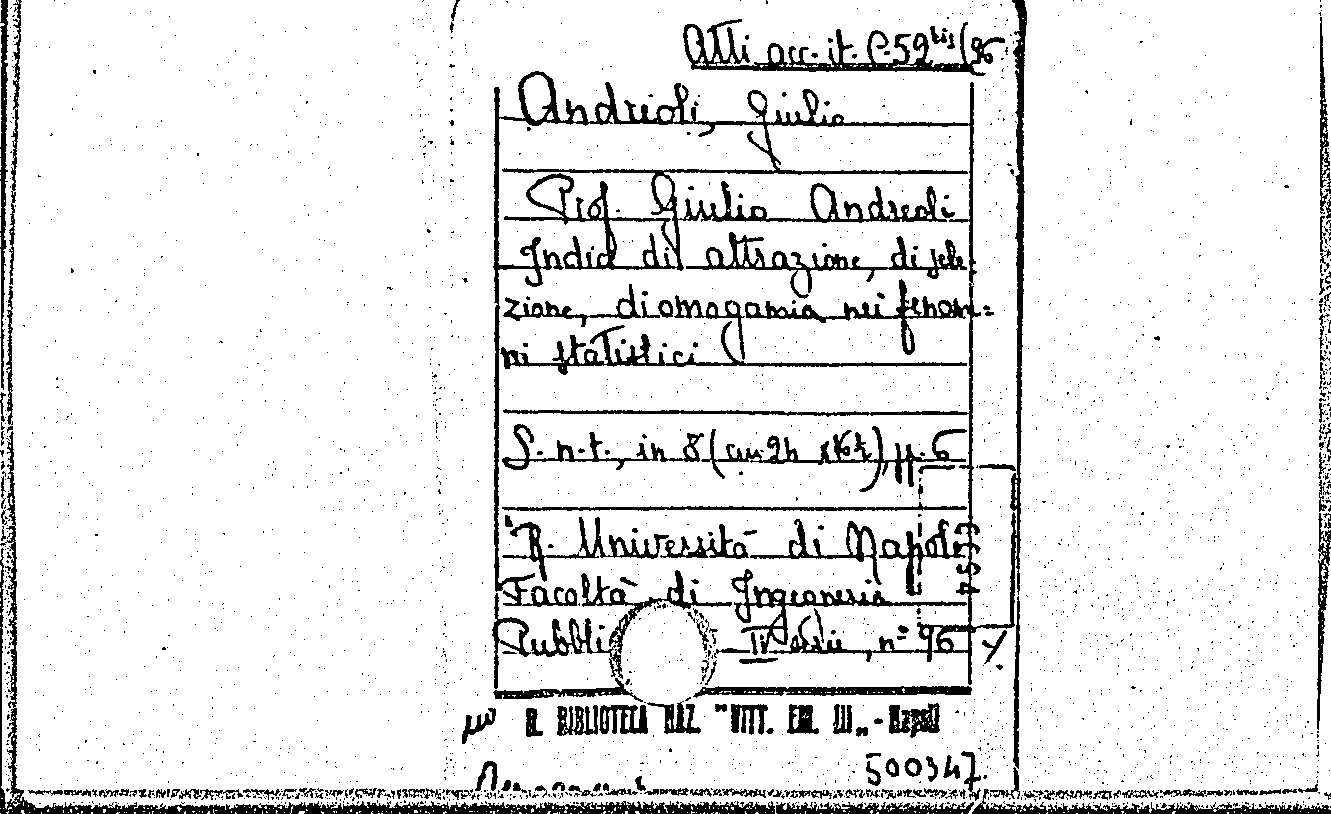 Atti acc. it. C. 59 bis (96
Andreoli, Giulio
Prof. Giulio Andreoli
Indici di attrazione, di sele-
zione, di omogamia nei fenom=
ni statistici
S. n. t., in 8 (cm. 24 x 16½), pp. 6
"R. Università di Napoli
Facoltà di Ingegneria
Pubbli IV serie, n° 96
R. BIBLIOTECA NAZ. "VITT. EM. III„ - Napoli
500347